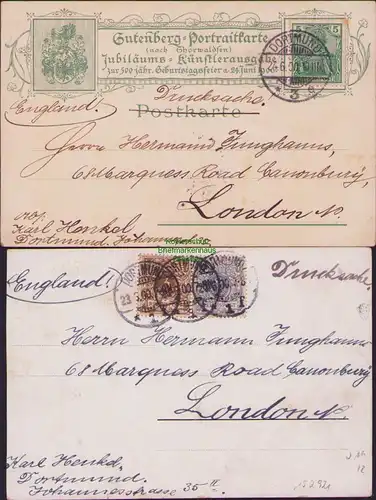 Gutenberg-Portraitkarte
(nach Thorwaldsen)
Jubiläums-Künstlerausgabe
zur 500 jähr. Geburtstagsfeier a. 24. Juni
5 5
DORTMUND
England!
Drucksache.
Postkarte
Herrn Hermann Junghanns,
68 Marquess Road Canonbury,
London N.
Karl Henkel
Dortmund, Johannes
England!
DORTMUND
23.5.00
Drucksache
Herrn Hermann Junghanns
68 Marquess Road Canonbury
London N.
Karl Henkel,
Dortmund.
Johannesstrasse 35 II